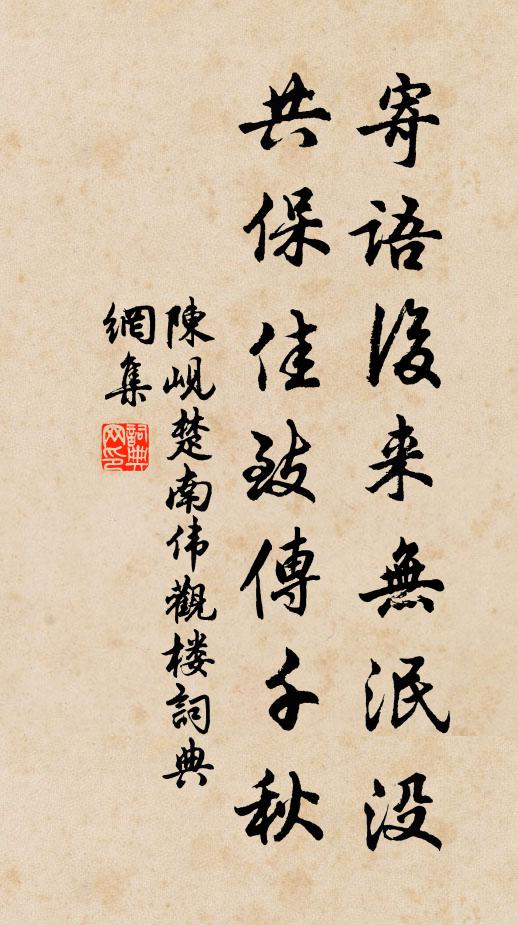 寄語後来無泯没
共保佳致傳千秋
陳峴楚南伟觀楼詞典
網集
詞典
网印